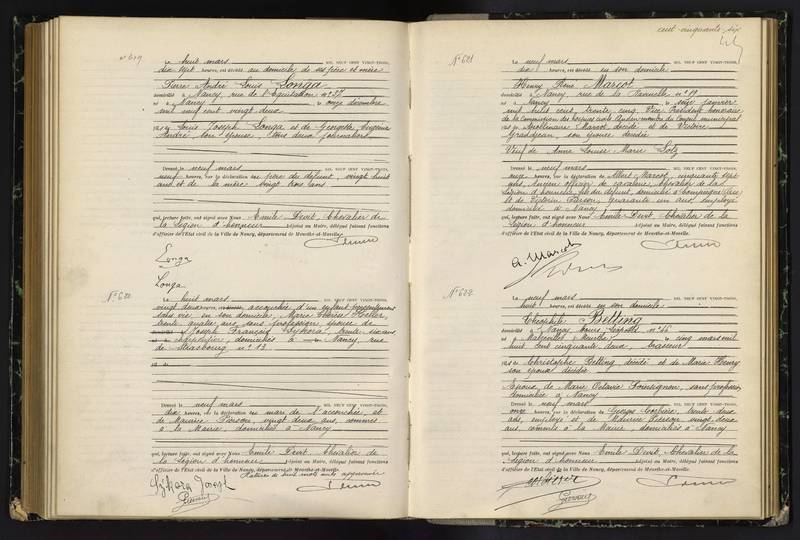 cent cinquante six
N° 619
Le huit mars MIL NEUF CENT VINGT-TROIS,
dix sept heures, est décédé au domicile de ses père et mère
Pierre André Louis Longa
domicilié à Nancy, rue de l'Equitation n° 37
né à Nancy le onze décembre
mil neuf cent vingt deux
fils de Louis Joseph Longa et de Georgette Eugénie
André, son épouse, tous deux journaliers
Dressé le neuf mars MIL NEUF CENT VINGT-TROIS,
neuf heures, sur la déclaration du père du défunt, vingt huit
ans et de la mère vingt trois ans
qui, lecture faite, ont signé avec Nous Emile Devit, Chevalier de
la Légion d'honneur adjoint au Maire, délégué faisant fonctions
d'officier de l'Etat civil de la Ville de Nancy, département de Meurthe-et-Moselle.
Longa
Longa
N° 620
Le huit mars MIL NEUF CENT VINGT-TROIS,
vingt deux heures, accouchée d'un enfant
sans vie, en son domicile, Marie Thérèse Heller,
trente quatre ans, sans profession épouse de
Joseph François Sykora, trente six ans,
charpentier, domiciliés à Nancy, rue
de Strasbourg n° 13
Dressé le neuf mars MIL NEUF CENT VINGT-TROIS,
dix heures, sur la déclaration du mari de l'accouchée, et
de Maurice Pierson, vingt deux ans, commis
à la Mairie, domiciliés à Nancy
qui, lecture faite, ont signé avec Nous Emile Devit, Chevalier de
la Légion d'honneur adjoint au Maire, délégué faisant fonctions
d'officier de l'Etat civil de la Ville de Nancy, département de Meurthe-et-Moselle.
Rature de huit mots nuls approuvée
Sykora Joseph
N° 621
Le neuf mars MIL NEUF CENT VINGT-TROIS,
dix heures, est décédé en son domicile
Henry René Marcot
domicilié à Nancy, rue de la Ravinelle n° 19
né à Nancy le seize janvier
mil huit cent trente cinq, Vice Président honoraire
de la Commission des hospices civils Ancien membre du Conseil municipal
fils de Apollinaire Marcot décédé et de Victoire
Grandjean, son épouse décédée
Veuf de Anne Louise Marie Lotz
Dressé le neuf mars MIL NEUF CENT VINGT-TROIS,
onze heures, sur la déclaration de Albert Marcot, cinquante sept
ans, Ancien officier de cavalerie, Chevalier de la
Légion d'honneur fils du défunt, domicilié à Compiègne (Oise)
et de Victorin Parson, quarante un ans, employé
domicilié à Nancy
qui, lecture faite, ont signé avec Nous Emile Devit, Chevalier de la
Légion d'honneur adjoint au Maire, délégué faisant fonctions
d'officier de l'Etat civil de la Ville de Nancy, département de Meurthe-et-Moselle.
A. Marcot
N° 622
Le neuf mars MIL NEUF CENT VINGT-TROIS,
huit heures, est décédé en son domicile
Théophile Betting
domicilié à Nancy Cours Léopold n° 46
né à le cinq mars mil
huit cent cinquante deux, brasseur
fils de Christophe Betting, décédé et de Marie Henry
son épouse décédée
Epoux de Marie Octavie Poinsignon, sans profession
domiciliée à Nancy
Dressé le neuf mars MIL NEUF CENT VINGT-TROIS,
onze heures, sur la déclaration de Georges trente deux
ans, employé et de Maurice Pierson vingt deux
ans, commis à la Mairie domiciliés à Nancy
qui, lecture faite, ont signé avec Nous Emile Devit, Chevalier de la
Légion d'honneur adjoint au Maire, délégué faisant fonctions
d'officier de l'Etat civil de la Ville de Nancy, département de Meurthe-et-Moselle.